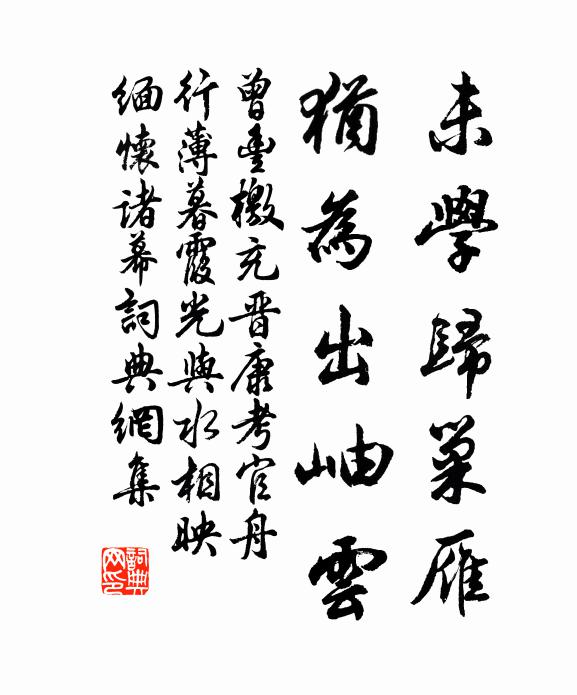 未學歸巢雁
猶為出岫雲
曾豐檄充晋康考官舟
行薄暮霞光與水相映
緬懷諸幕詞典網集
詞典网印